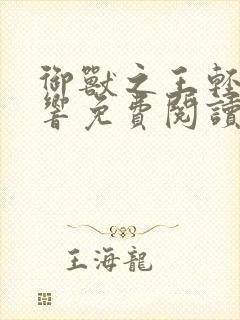 御獸之王輕
響免費閱讀
王海龍